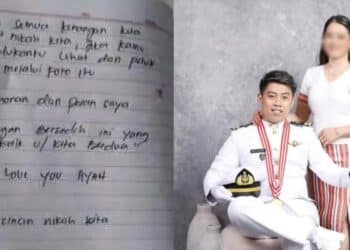 Semua kenangan kita
nikah kita, atau kamu
lihat dan peluk
melalui Foto itu
dan pesan saya
Bersedih ini yang
baik u/ kita Berdua"
Love you AYAH
cincin nikah kita